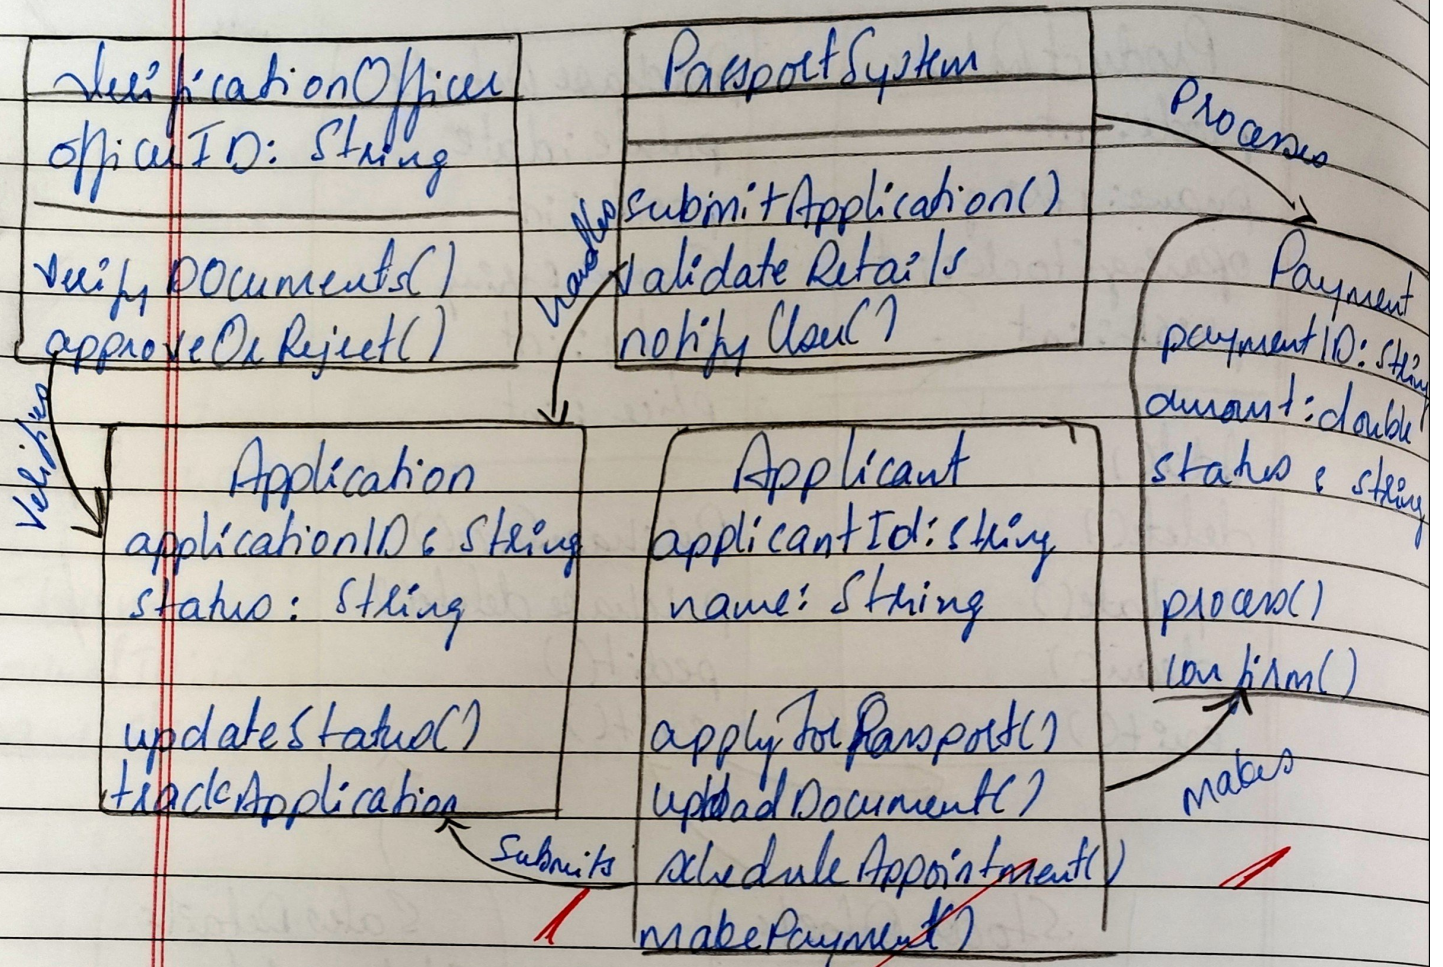 VerificationOfficer
officerID: String
verifyDocuments()
approveOrReject()
Verifies
PassportSystem
submitApplication()
validateDetails
notifyUser()
handles
Processes
Payment
paymentID: String
amount: double
status: String
process()
confirm()
Application
applicationID: String
status: String
updateStatus()
trackApplication
Submits
Applicant
applicantId: String
name: String
applyForPassport()
uploadDocument()
scheduleAppointment()
makePayment()
makes